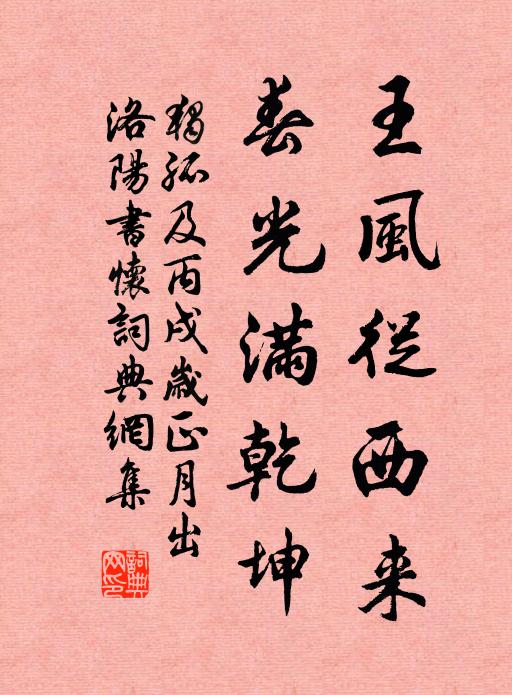 王風從西来
春光滿乾坤
獨孤及丙戌歲正月出
洛陽書懷詞典網集
詞典網印